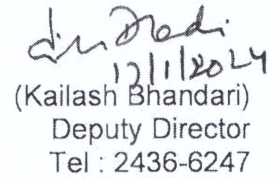 12/1/2024
(Kailash Bhandari)
Deputy Director
Tel : 2436-6247